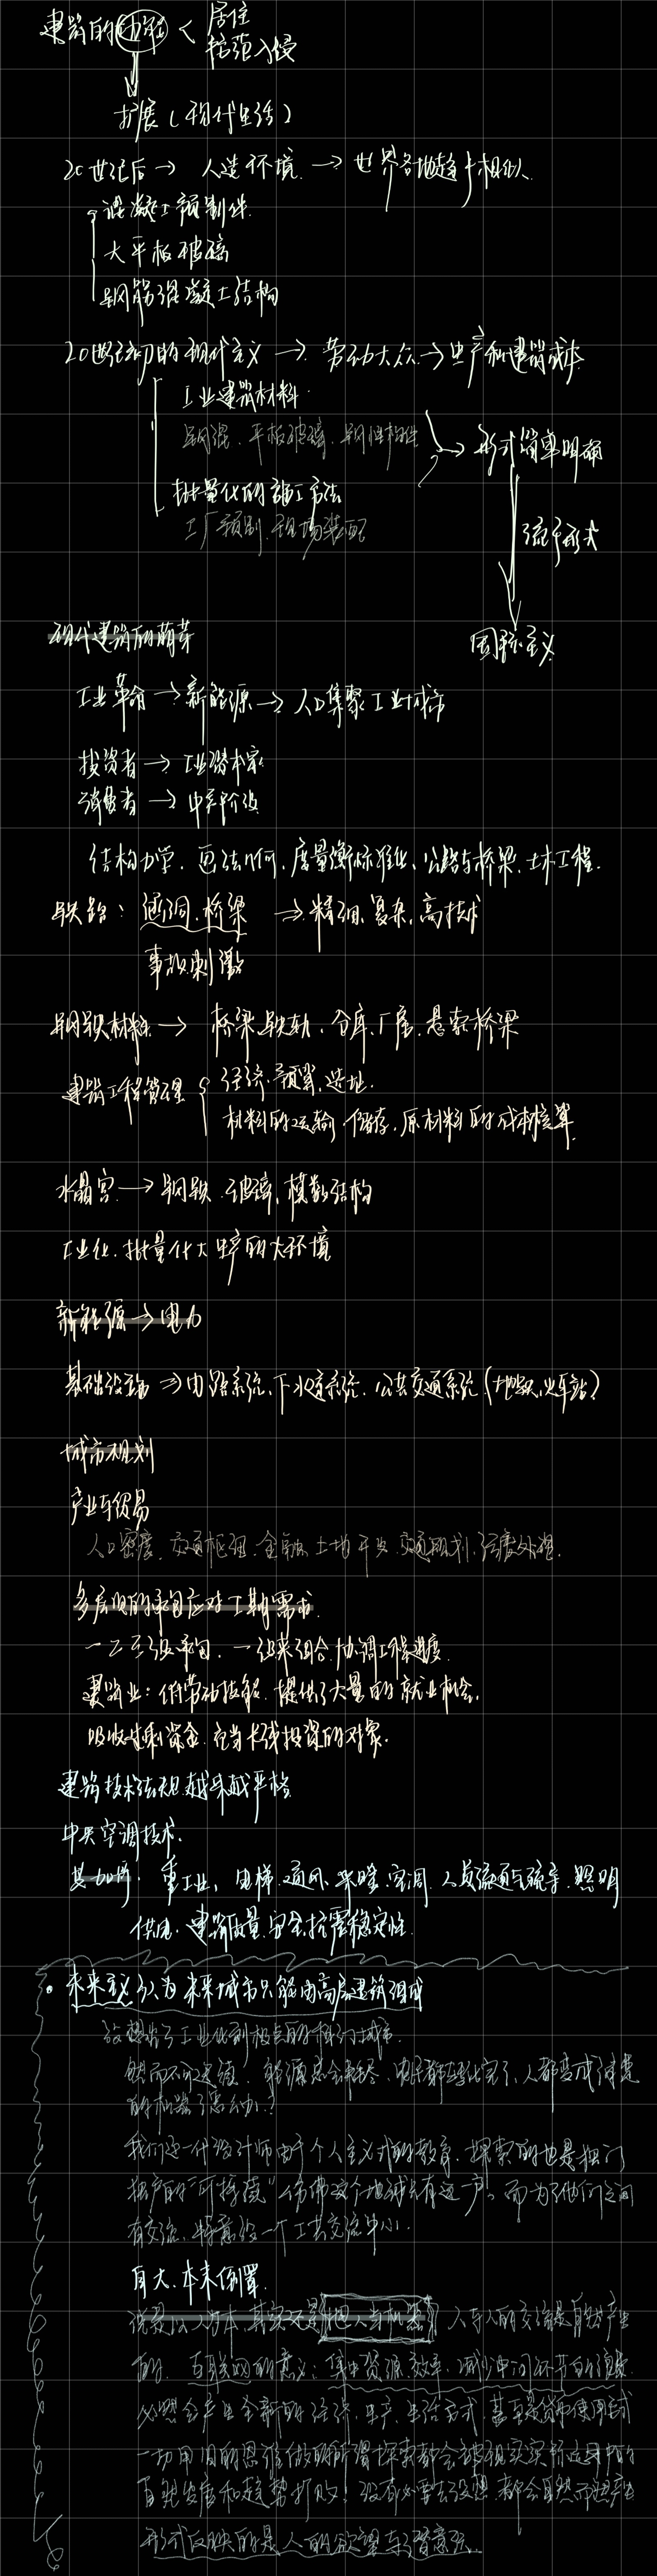 建筑的功能 < 居住
防范入侵
扩展（现代生活）
20世纪后 → 人造环境 → 世界各地趋于相似
混凝土预制件
大平板玻璃
钢筋混凝土结构
20世纪初的现代主义 → 劳动大众 → 生产和建筑成本
工业建筑材料
钢混、平板玻璃、钢性构件
→ 形式简单明确
批量化的施工方法
工厂预制、现场装配
流于形式
现代建筑的萌芽
国际主义
工业革命 → 新能源 → 人口集聚工业城市
投资者 → 工业资本家
消费者 → 中产阶级
结构力学、画法几何、度量衡标准化、公路与桥梁、土木工程.
铁路：涵洞、桥梁 → 精细、复杂、高技术
事故刺激
钢铁材料 → 桥梁、铁轨、仓库、厂房、悬索桥梁
建筑工程管理 { 经济、预算、选址.
材料的运输、储存、原材料的成本核算.
水晶宫 → 钢铁、玻璃、模数结构
工业化、批量化大生产的大环境
新能源 → 电力
基础设施 → 电路系统、下水道系统、公共交通系统（地铁、火车站）
城市规划
产业与贸易
人口密度、交通枢纽、金融、土地开发、交通规划、污废处理.
多层次的承包应对工期需求.
一二三级承包，一级来组合、协调工程进度.
建筑业：低劳动技能、提供了大量的就业机会.
吸收过剩资金、充当长线投资的对象.
建筑技术法规越来越严格
中央空调技术.
重工业、电梯、通风、采暖、空调、人员流通与疏导、照明
供电、建筑质量、安全、抗震稳定性.
• 未来主义认为未来城市只能由高层建筑组成
设想出了工业化到极点的科幻城市.
然而不可定值，能源总会耗尽，人都变成
的机器了怎么办？
我们这一代设计师由于个人主义式的教育，探索的也是独门
独户的“可持续”仿佛这个地球只有这一户。而为了他们之间
有交流，特意设一个公共交流中心.
自大、本末倒置.
说是以人为本，其实还是把人当机器 人与人的交流是自然产生
的. 互联网的意义：集中资源、效率、减少中间环节的浪费.
必然会产生全新的经济、生产、生活方式，甚至是货币使用方式
一切用旧的思维做的所谓探索都会被现实实际应用中的
自然发展和趋势打败！没有必要去设想，都会自然而然产生
形式反映的是人的欲望与潜意识.